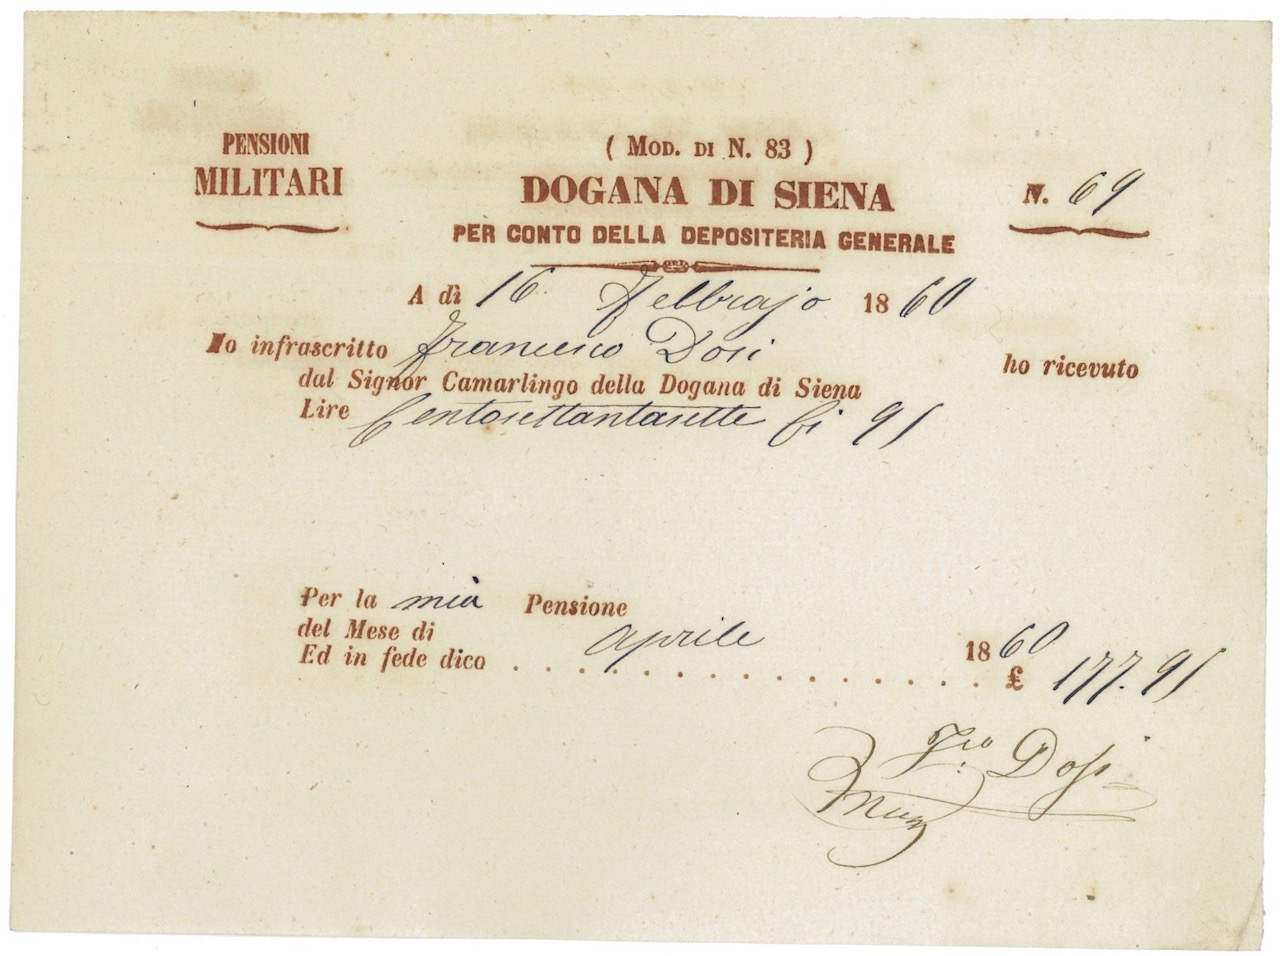 PENSIONI
MILITARI
( MOD. DI N. 83 )
DOGANA DI SIENA
PER CONTO DELLA DEPOSITERIA GENERALE
N. 69
A dì 16 Febbrajo 1860
Io infrascritto Francesco Dosi ho ricevuto
dal Signor Camarlingo della Dogana di Siena
Lire Centosettantasette 91
Per la mia Pensione
del Mese di aprile 1860
Ed in fede dico . . . . . . . . . . . . . . . £ 177.91
Fco Dosi